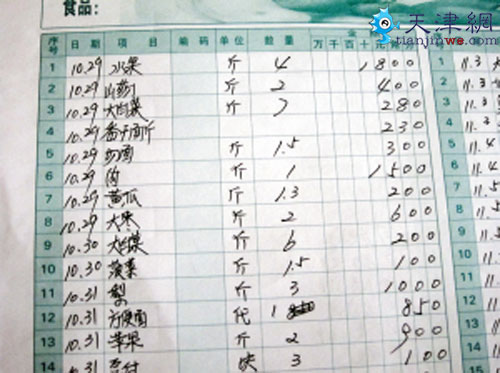 食品:
天津網
tianjinwe.com
序号 日期 项目 编码 单位 数量 金 万 千 百 十 元
1 10.29 水果 斤 4 1800
2 10.29 山药 斤 2 400
3 10.29 大白菜 斤 7 280
4 10.29 230
5 10.29 斤 1.5 300
6 10.29 肉 斤 1 1500
7 10.29 黄瓜 斤 1.3 200
8 10.29 大枣 斤 2 600
9 10.30 大白菜 斤 6 200
10 10.30 菠菜 斤 1.5 100
11 10.31 梨 斤 3 1000
12 10.31 方便面 代 1 850
13 10.31 苹果 斤 2 900
14 10.31 块 3 100
1 11.3
2 11.3
3 11.3
4 11.4
5 11.4